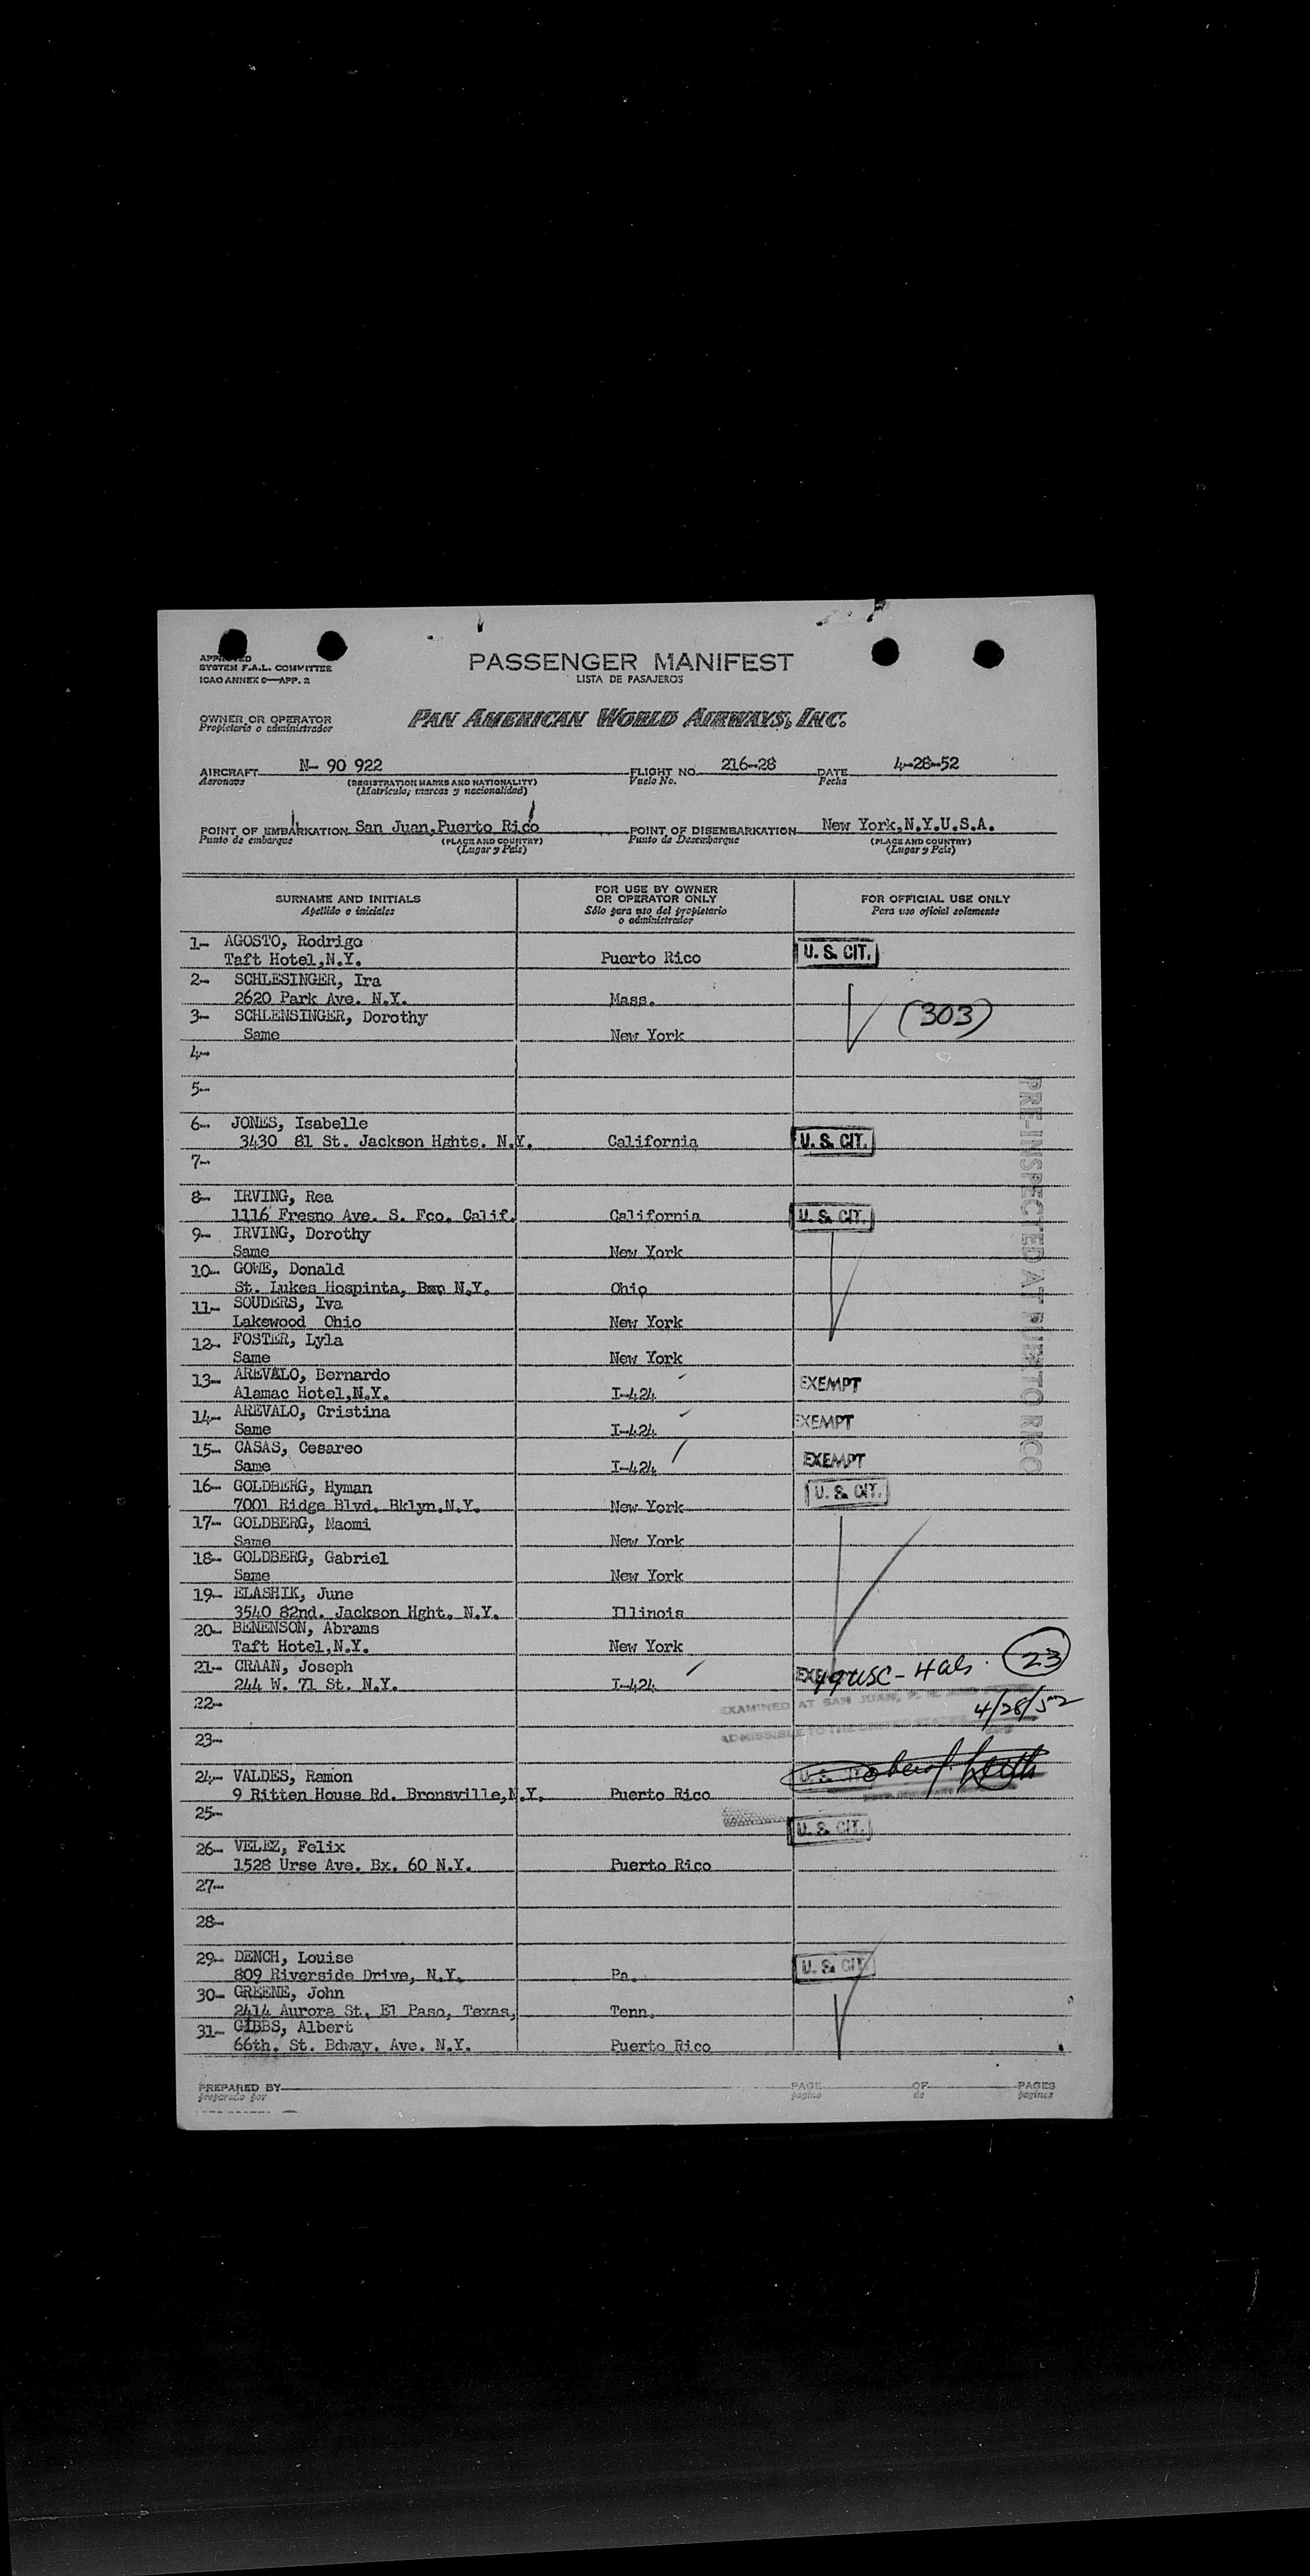 APPROVED
SYSTEM F.A.L. COMMITTEE
ICAO ANNEX 9—APP. 2
PASSENGER MANIFEST
LISTA DE PASAJEROS
OWNER OR OPERATOR
Propietario o administrador
PAN AMERICAN WORLD AIRWAYS, INC.
AIRCRAFT N- 90 922 FLIGHT NO. 216-28 DATE 4-28-52
Aeronave Vuelo No. Fecha
(REGISTRATION MARKS AND NATIONALITY)
(Matrícula; marcas y nacionalidad)
POINT OF EMBARKATION San Juan,Puerto Rico POINT OF DISEMBARKATION New York,N.Y.U.S.A.
Punto de embarque (PLACE AND COUNTRY) Punto de Desembarque (PLACE AND COUNTRY)
(Lugar y País) (Lugar y País)
SURNAME AND INITIALS FOR USE BY OWNER OR OPERATOR ONLY FOR OFFICIAL USE ONLY
Apellido e iniciales Sólo para uso del propietario o administrador Para uso oficial solamente
1- AGOSTO, Rodrigo
Taft Hotel,N.Y. Puerto Rico U. S. CIT.
2- SCHLESINGER, Ira
2620 Park Ave. N.Y. Mass.
3- SCHLENSINGER, Dorothy (303)
Same New York
4-
5-
6- JONES, Isabelle
3430 81 St. Jackson Hghts. N.Y. California U. S. CIT.
7-
8- IRVING, Rea
1116 Fresno Ave. S. Fco. Calif. California U. S. CIT.
9- IRVING, Dorothy
Same New York
10- GOWE, Donald
St. Lukes Hospinta, N.Y. Ohio
11- SOUDERS, Iva
Lakewood Ohio New York
12- FOSTER, Lyla
Same New York
13- AREVALO, Bernardo
Alamac Hotel,N.Y. I-424 EXEMPT
14- AREVALO, Cristina
Same I-424 EXEMPT
15- CASAS, Cesareo
Same I-424 EXEMPT
16- GOLDBERG, Hyman
7001 Ridge Blvd. Bklyn.N.Y. New York U. S. CIT.
17- GOLDBERG, Naomi
Same New York
18- GOLDBERG, Gabriel
Same New York
19- ELASHIK, June
3540 82nd. Jackson Hght. N.Y. Illinois
20- BENENSON, Abrams
Taft Hotel,N.Y. New York
21- CRAAN, Joseph
244 W. 71 St. N.Y. I-424 19 USC - 4 als. 23
22-
EXAMINED AT SAN JUAN, P. R. AND 4/28/52
23-
ADMISSIBLE TO THE UNITED STATES
24- VALDES, Ramon
9 Ritten House Rd. Bronsville,N.Y. Puerto Rico
25-
U. S. CIT.
26- VELEZ, Felix
1528 Urse Ave. Bx. 60 N.Y. Puerto Rico
27-
28-
29- DENCH, Louise
809 Riverside Drive, N.Y. Pa. U. S. CIT.
30- GREENE, John
2414 Aurora St. El Paso, Texas, Tenn.
31- GIBBS, Albert
66th. St. Bdway. Ave. N.Y. Puerto Rico
PRE-INSPECTED AT PUERTO RICO
PREPARED BY PAGE OF PAGES
preparado por página de páginas